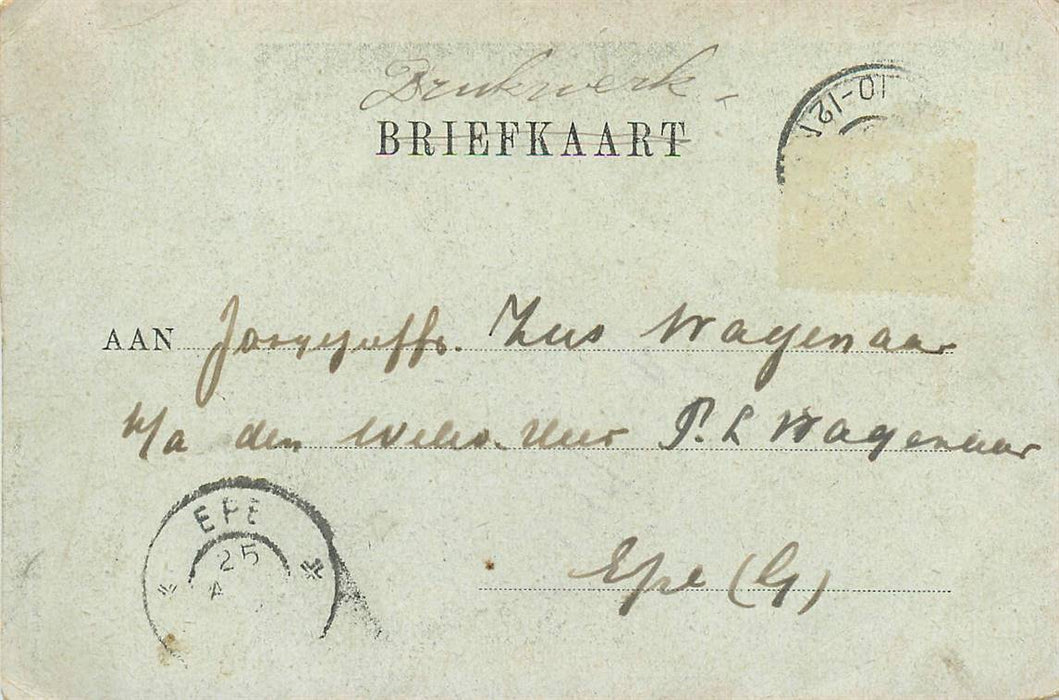 Drukwerk
BRIEFKAART
10-12V
AAN Jongejuffr. Zus Wagenaar
p/a den Weled. Heer P. L Wagenaar
EPE
25
Epe (G)